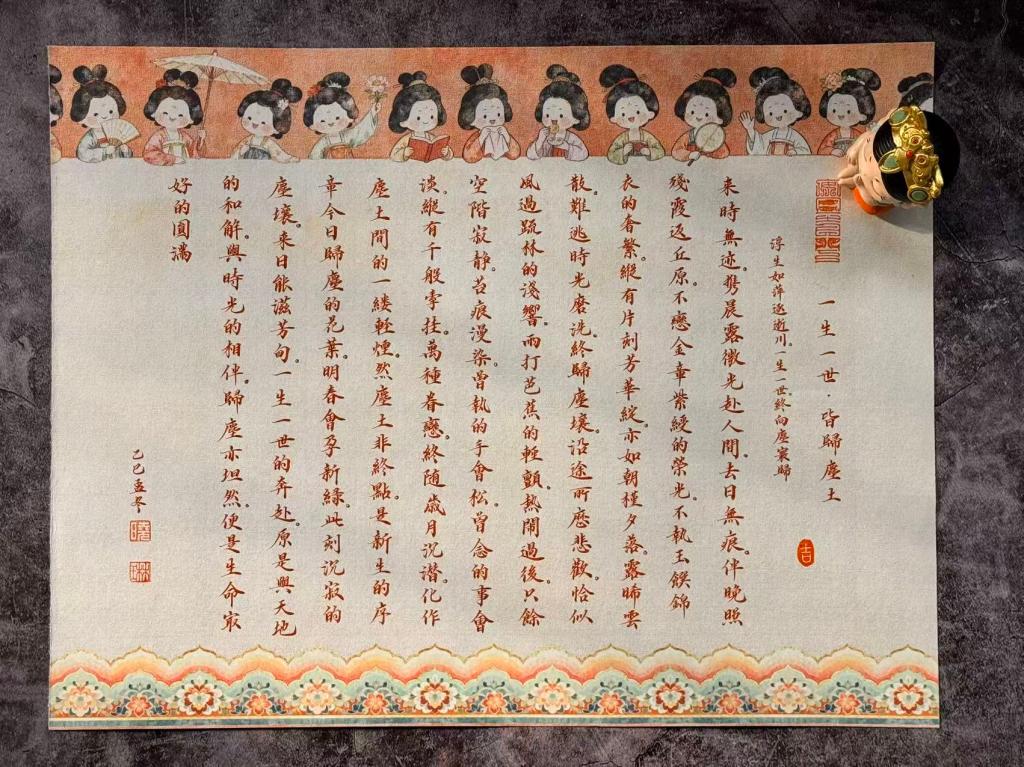 一生一世·皆歸塵土
浮生如萍逐逝川。一生一世。終向塵寰歸
来時無迹。携晨露微光赴人間。去日無痕。伴晚照
殘霞返丘原。不戀金章紫綬的榮光。不執玉饌錦
衣的奢繁。縱有片刻芳華綻。亦如朝槿夕落。露晞雲
散。難逃時光磨洗。終歸塵壤。沿途所歷悲歡。恰似
風過疏林的淺響。雨打芭蕉的輕顫。熱鬧過後。只餘
空階寂静。苔痕漫染。曾執的手會松。曾念的事會
淡。縱有千般牽挂。萬種眷戀。終隨歲月沉潜。化作
塵土間的一縷輕煙。然塵土非終點。是新生的序
章。今日歸塵的花葉。明春會孕新綠。此刻沉寂的
塵壤。来日能滋芳甸。一生一世的奔赴。原是與天地
的和解。與時光的相伴。歸塵亦坦然。便是生命最
好的圓滿
乙巳孟冬
吉